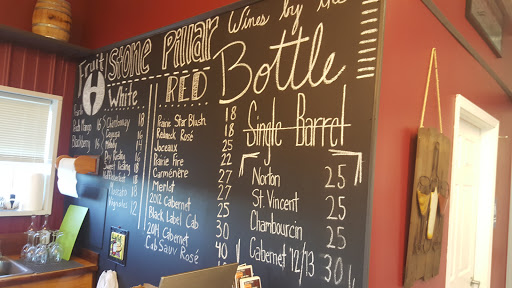 Stone Pillar Wines by the
Bottle
Fruit
Peach 16
Red Mango 16
Blackberry 16
White
Chardonnay 18
Cayuga 16
Melody 14
Dry Riesling 16
Sweet Riesling 18
18
Moscato 18
12
RED
Prairie Star Blush 18
Redneck Rosé 18
Joceaux 25
Prairie Fire 22
Carménère 27
Merlot 27
2012 Cabernet 25
Black Label Cab 30
2014 Cabernet 40
Cab Sauv Rosé
Single Barrel
Norton 25
St. Vincent 25
Chambourcin 25
Cabernet '12/13 30